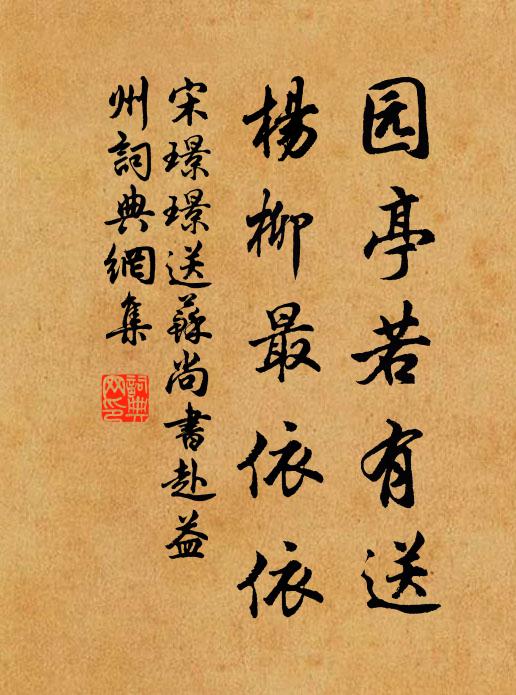 园亭若有送
楊柳最依依
宋璟璟送蘇尚書赴益
州詞典網集
詞典
网印